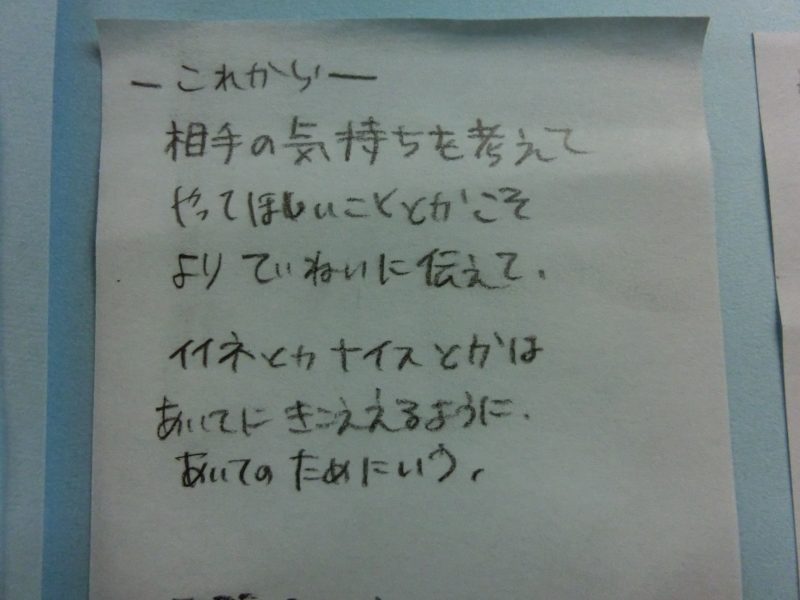 ーこれからー
相手の気持ちを考えて
やってほしいこととかこそ
よりていねいに伝えて、
イイネとカナイスとかは
あいてにきこええるように、
あいてのためにいう。